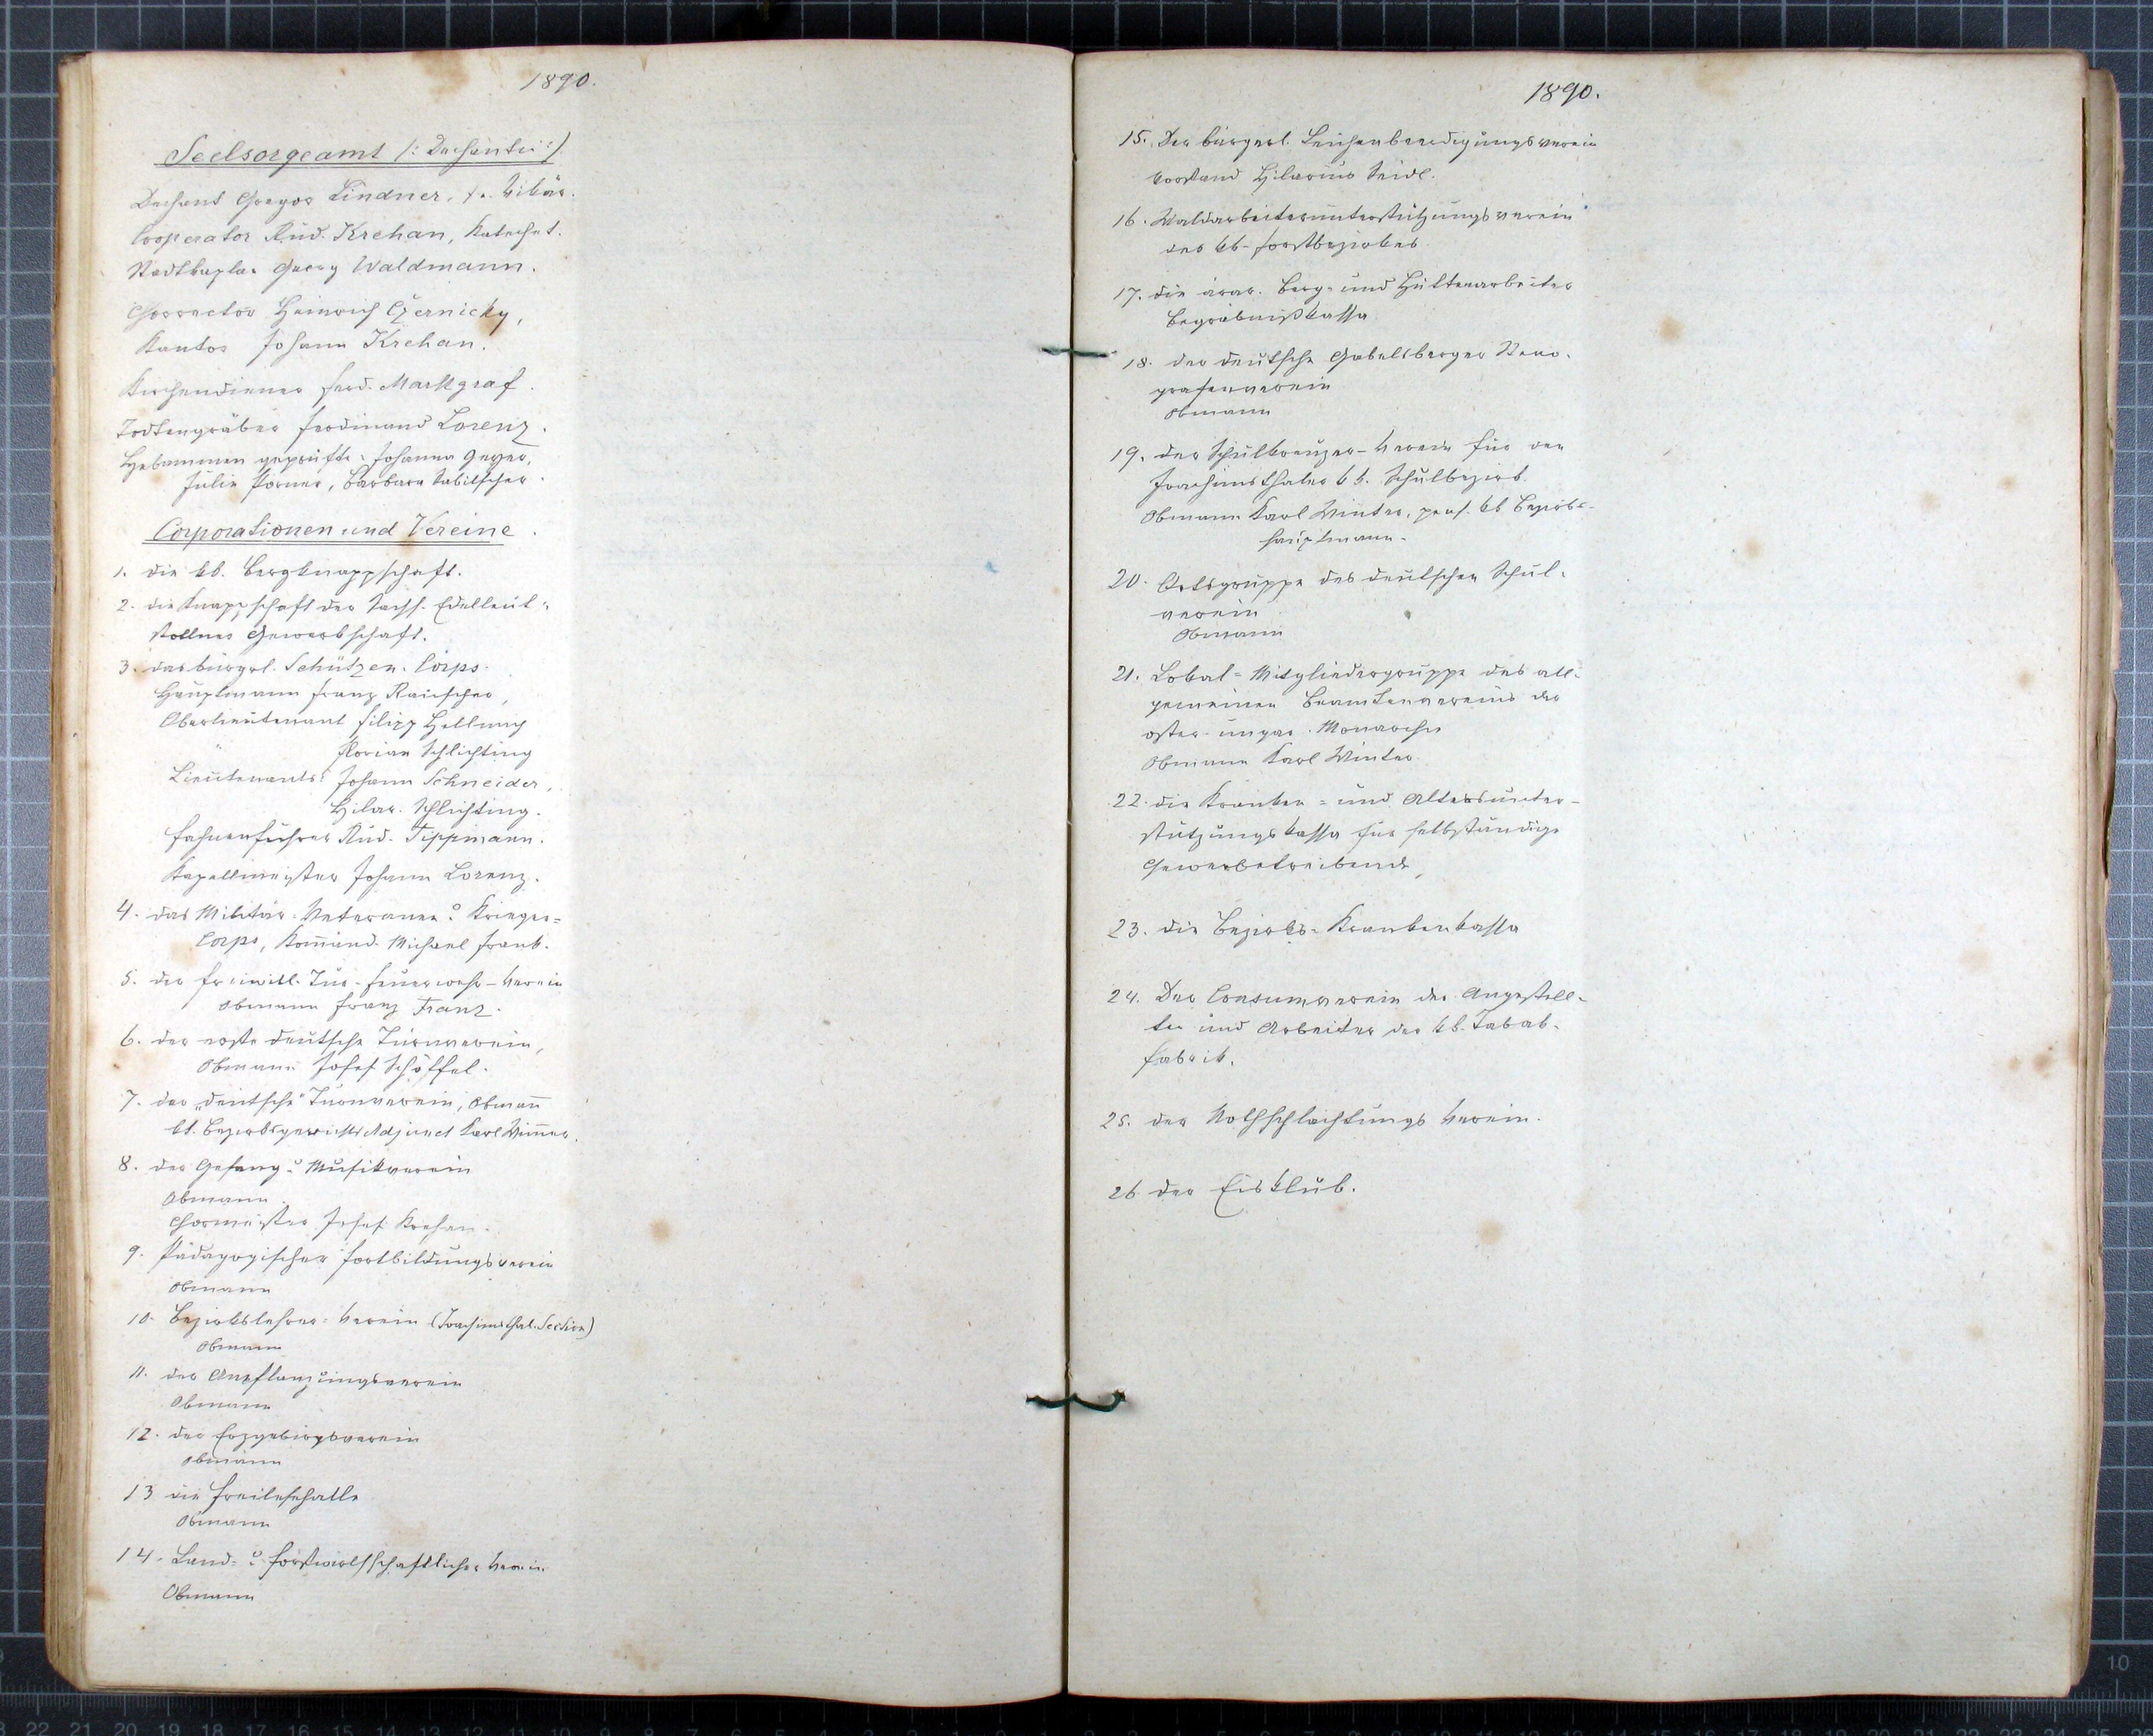 1890.
Seelsorgeamt /: Dechantei :/
Dechant Gregor Lindner, f. e. Vikär.
Cooperator Rud. Krehan, Katechet.
Stadtkaplan Georg Waldmann.
Chorrector Heinrich Czernicky,
Kantor Johann Krehan.
Kirchendiener Ferd. Markgraf.
Todtengräber Ferdinand Lorenz.
Hebammen geprüfte: Johanna Geyer,
Julie Porner, Barbara Sabitscher.
Corporationen und Vereine.
1. die kk. Bergknappschaft.
2. die Knappschaft der Sächs. Edelleut-
stollner Gewerkschaft.
3. das bürgerl. Schützen-Corps.
Hauptmann Franz Rauscher,
Oberlieutenant Filipp Hellmich
" Florian Schlichting
Lieutenants: Johann Schneider,
Hilar. Schlichting.
Fahnenführer Rud. Tippmann.
Kapellmeister Johann Lorenz.
4. das Militär-Veteranen u. Krieger=
Corps, Komand. Michael Frank.
5. der freiwill. Tur-Feuerwehr-Verein
Obmann Franz Franz.
6. der erste deutsche Turnverein,
Obmann Josef Schöffel.
7. der „deutsche" Turnverein, Obmann
kk. Bezirksgerichts Adjunct Karl Wimmer.
8. der Gesang- u. Musikverein
Obmann
Chormeister Josef Krehan.
9. Pädagogischer Fortbildungsverein
Obmann
10. Bezirkslehrer-Verein (Joachimsthal. Section)
Obmann
11. der Anpflanzungsverein
Obmann
12. der Erzgebirgsverein
Obmann
13 die Freilesehalle
Obmann
14. Land- u. forstwirthschaftlicher Verein
Obmann
1890.
15. Der bürgerl. Leichenbeerdigungsverein
Vorstand Hilarius Seidl.
16. Waldarbeiterunterstützungsverein
des kk. Forstbezirkes
17. die ärar. Berg- und Hüttenarbeiter
Begräbnißkassa
18. der deutsche Gabelsberger Steno-
grafenverein
Obmann
19. der Schulkreuzer-Verein für den
Joachimsthaler kk. Schulbezirk.
Obmann Karl Winter, pens. kk Bezirks-
hauptmann.
20. Ortsgruppe des deutschen Schul-
verein
Obmann
21. Lokal-Mitgliedergruppe des all-
gemeinen Beamtenvereins der
öster-ungar. Monarchie
Obmann Karl Winter
22. die Kranken- und Altersunter-
stützungskassa für selbständige
Gewerbetreibende,
23. die Bezirks-Krankenkassa
24. Der Consumverein der Angestell-
ten und Arbeiter der kk. Tabak-
fabrik.
25. der Nothschlachtungs Verein.
26 der Eisklub.